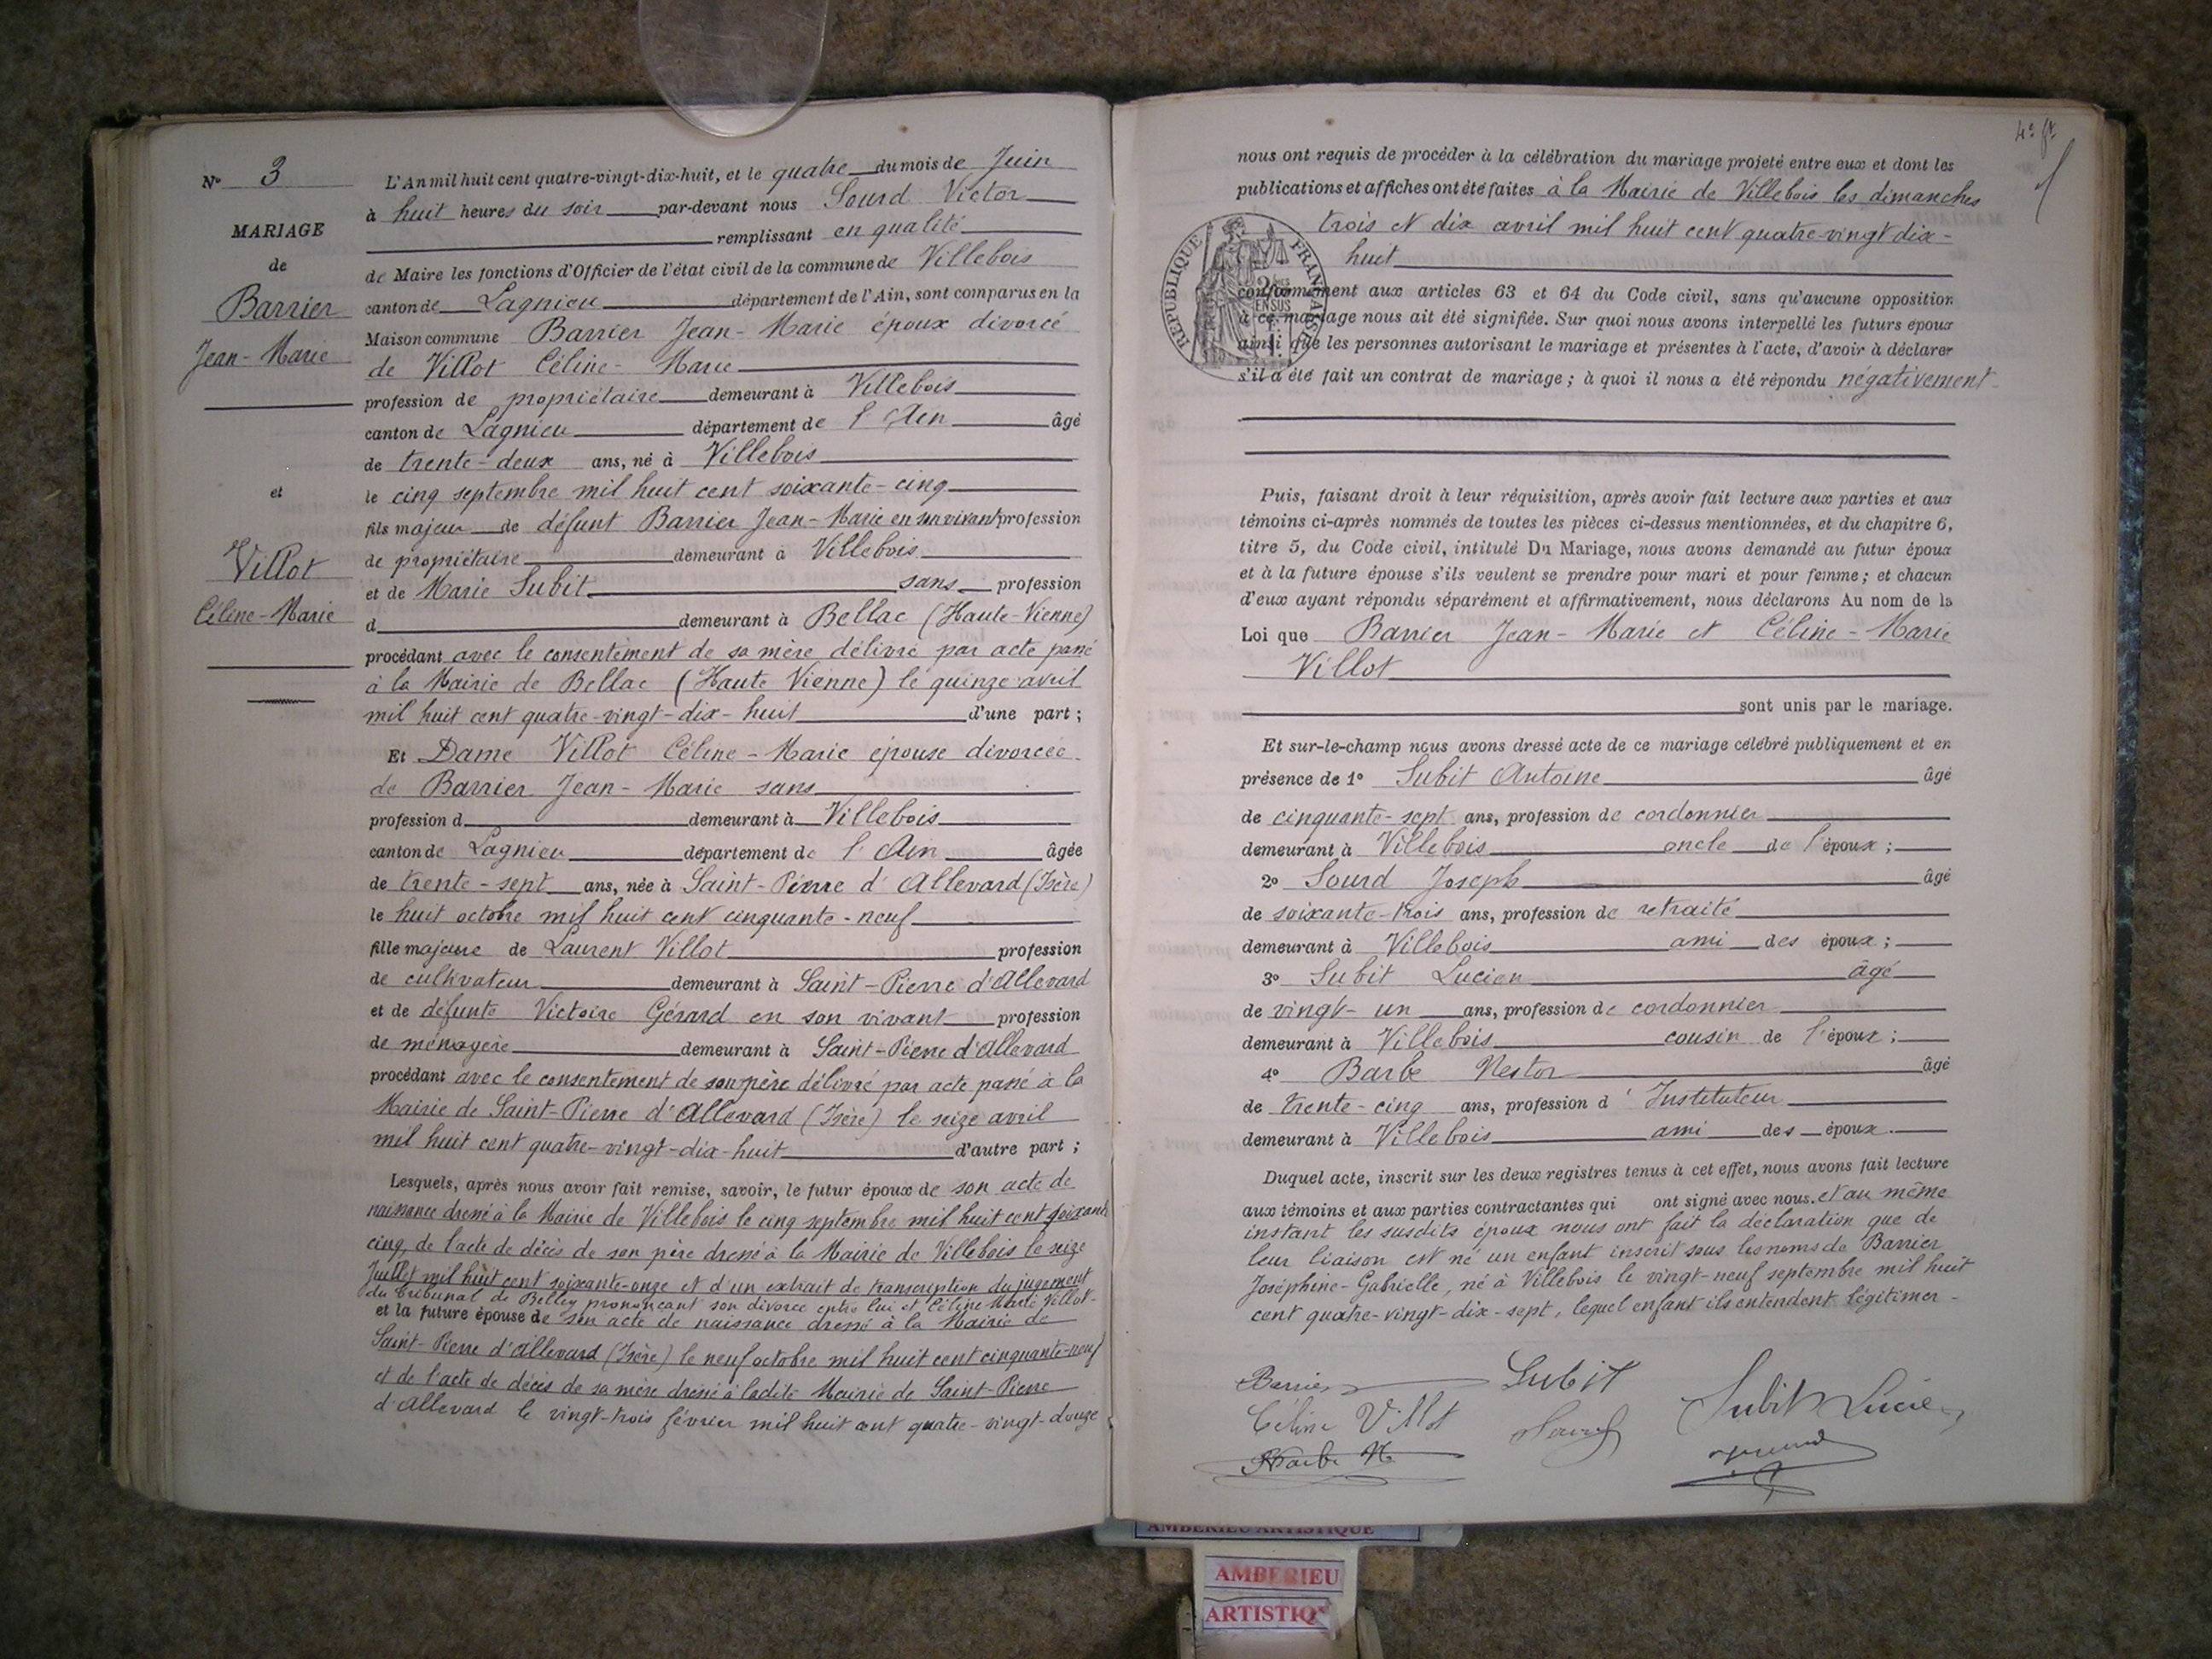 N° 3
MARIAGE
de
Barrier
Jean-Marie
et
Villot
Céline-Marie
L'An mil huit cent quatre-vingt-dix-huit, et le quatre du mois de Juin
à huit heures du soir par-devant nous Sourd Victor
remplissant en qualité
de Maire les fonctions d'Officier de l'état civil de la commune de Villebois
canton de Lagnieu département de l'Ain, sont comparus en la
Maison commune Barrier Jean-Marie époux divorcé
de Villot Céline-Marie
profession de propriétaire demeurant à Villebois
canton de Lagnieu département de l'Ain âgé
de trente-deux ans, né à Villebois
le cinq septembre mil huit cent soixante-cinq
fils majeur de défunt Barrier Jean-Marie en son vivant profession
de propriétaire demeurant à Villebois
et de Marie Subit sans profession
d demeurant à Bellac (Haute-Vienne)
procédant avec le consentement de sa mère délivré par acte passé
à la Mairie de Bellac (Haute Vienne) le quinze avril
mil huit cent quatre-vingt-dix-huit d'une part ;
Et Dame Villot Céline-Marie épouse divorcée
de Barrier Jean-Marie sans
profession d demeurant à Villebois
canton de Lagnieu département de l'Ain âgée
de trente-sept ans, née à Saint-Pierre d'Allevard (Isère)
le huit octobre mil huit cent cinquante-neuf
fille majeure de Laurent Villot profession
de cultivateur demeurant à Saint-Pierre d'Allevard
et de défunte Victoire Gérard en son vivant profession
de ménagère demeurant à Saint-Pierre d'Allevard
procédant avec le consentement de son père délivré par acte passé à la
Mairie de Saint-Pierre d'Allevard (Isère) le seize avril
mil huit cent quatre-vingt-dix-huit d'autre part ;
Lesquels, après nous avoir fait remise, savoir, le futur époux de son acte de
naissance dressé à la Mairie de Villebois le cinq septembre mil huit cent soixante
cinq, de l'acte de décès de son père dressé à la Mairie de Villebois le seize
Juillet mil huit cent soixante-onze et d'un extrait de transcription du jugement
du Tribunal de Belley prononçant son divorce entre lui et Céline Marie Villot-
et la future épouse de son acte de naissance dressé à la Mairie de
Saint-Pierre d'Allevard (Isère) le neuf octobre mil huit cent cinquante-neuf
et de l'acte de décès de sa mère dressé à ladite Mairie de Saint-Pierre
d'Allevard le vingt-trois février mil huit cent quatre-vingt-douze
nous ont requis de procéder à la célébration du mariage projeté entre eux et dont les
publications et affiches ont été faites à la Mairie de Villebois les dimanches
trois et dix avril mil huit cent quatre-vingt dix-
huit
RÉPUBLIQUE FRANÇAISE
conformément aux articles 63 et 64 du Code civil, sans qu'aucune opposition
à ce mariage nous ait été signifiée. Sur quoi nous avons interpellé les futurs époux
ainsi que les personnes autorisant le mariage et présentes à l'acte, d'avoir à déclarer
s'il a été fait un contrat de mariage ; à quoi il nous a été répondu négativement
Puis, faisant droit à leur réquisition, après avoir fait lecture aux parties et aux
témoins ci-après nommés de toutes les pièces ci-dessus mentionnées, et du chapitre 6,
titre 5, du Code civil, intitulé Du Mariage, nous avons demandé au futur époux
et à la future épouse s'ils veulent se prendre pour mari et pour femme ; et chacun
d'eux ayant répondu séparément et affirmativement, nous déclarons Au nom de la
Loi que Barrier Jean-Marie et Céline-Marie
Villot
sont unis par le mariage.
Et sur-le-champ nous avons dressé acte de ce mariage célébré publiquement et en
présence de 1° Subit Antoine âgé
de cinquante-sept ans, profession de cordonnier
demeurant à Villebois oncle de l'époux ;
2° Sourd Joseph âgé
de soixante-trois ans, profession de retraité
demeurant à Villebois ami des époux ;
3° Subit Lucien âgé
de vingt-un ans, profession de cordonnier
demeurant à Villebois cousin de l'époux ;
4° Barbe Nestor âgé
de trente-cinq ans, profession d'Instituteur
demeurant à Villebois ami des époux.
Duquel acte, inscrit sur les deux registres tenus à cet effet, nous avons fait lecture
aux témoins et aux parties contractantes qui ont signé avec nous. et au même
instant les susdits époux nous ont fait la déclaration que de
leur liaison est né un enfant inscrit sous les noms de Barrier
Joséphine-Gabrielle, né à Villebois le vingt-neuf septembre mil huit
cent quatre-vingt-dix-sept, lequel enfant ils entendent légitimer-
Barrier Subit Subit Lucien
Céline Villot Sourd
Barbe N.
AMBERIEU ARTISTIQUE
AMBERIEU
ARTISTIQ